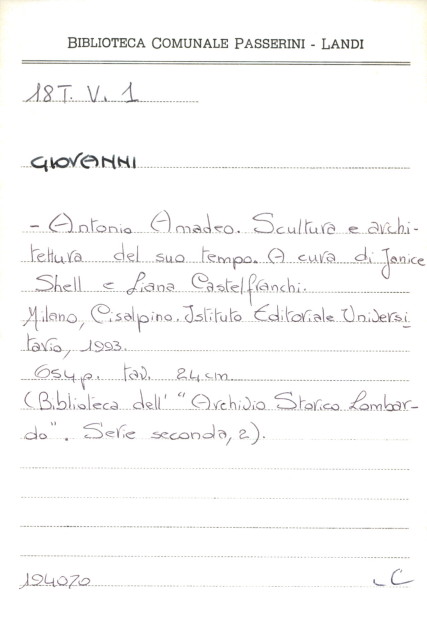 BIBLIOTECA COMUNALE PASSERINI - LANDI
18T. V. 1
GIOVANNI
- Antonio Amadeo. Scultura e archi-
tettura del suo tempo. A cura di Janice
Shell e Liana Castelfranchi.
Milano, Cisalpino. Istituto Editoriale Universi
tario, 1993.
654 p. tav. 24 cm
(Biblioteca dell' "Archivio Storico Lombar-
do". Serie seconda, 2).
194070 C